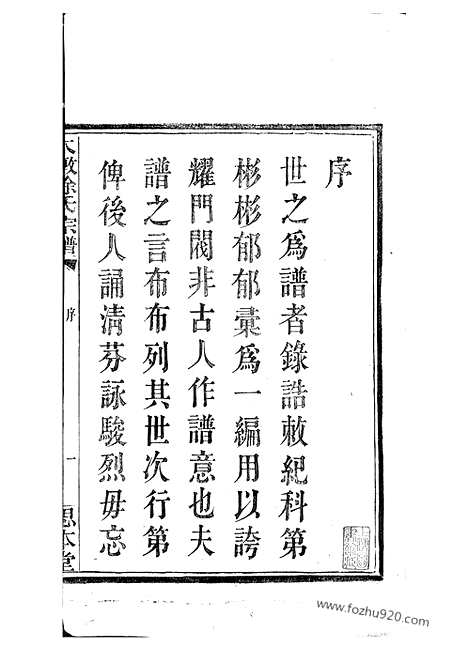 序
世之爲譜者錄誥敕紀科第
彬彬郁郁彙爲一編用以誇
耀門閥非古人作譜意也夫
譜之言布布列其世次行第
俾後人誦淸芬詠駿烈毋忘
徐氏宗譜
序
一
思本堂
www.fozhu920.com